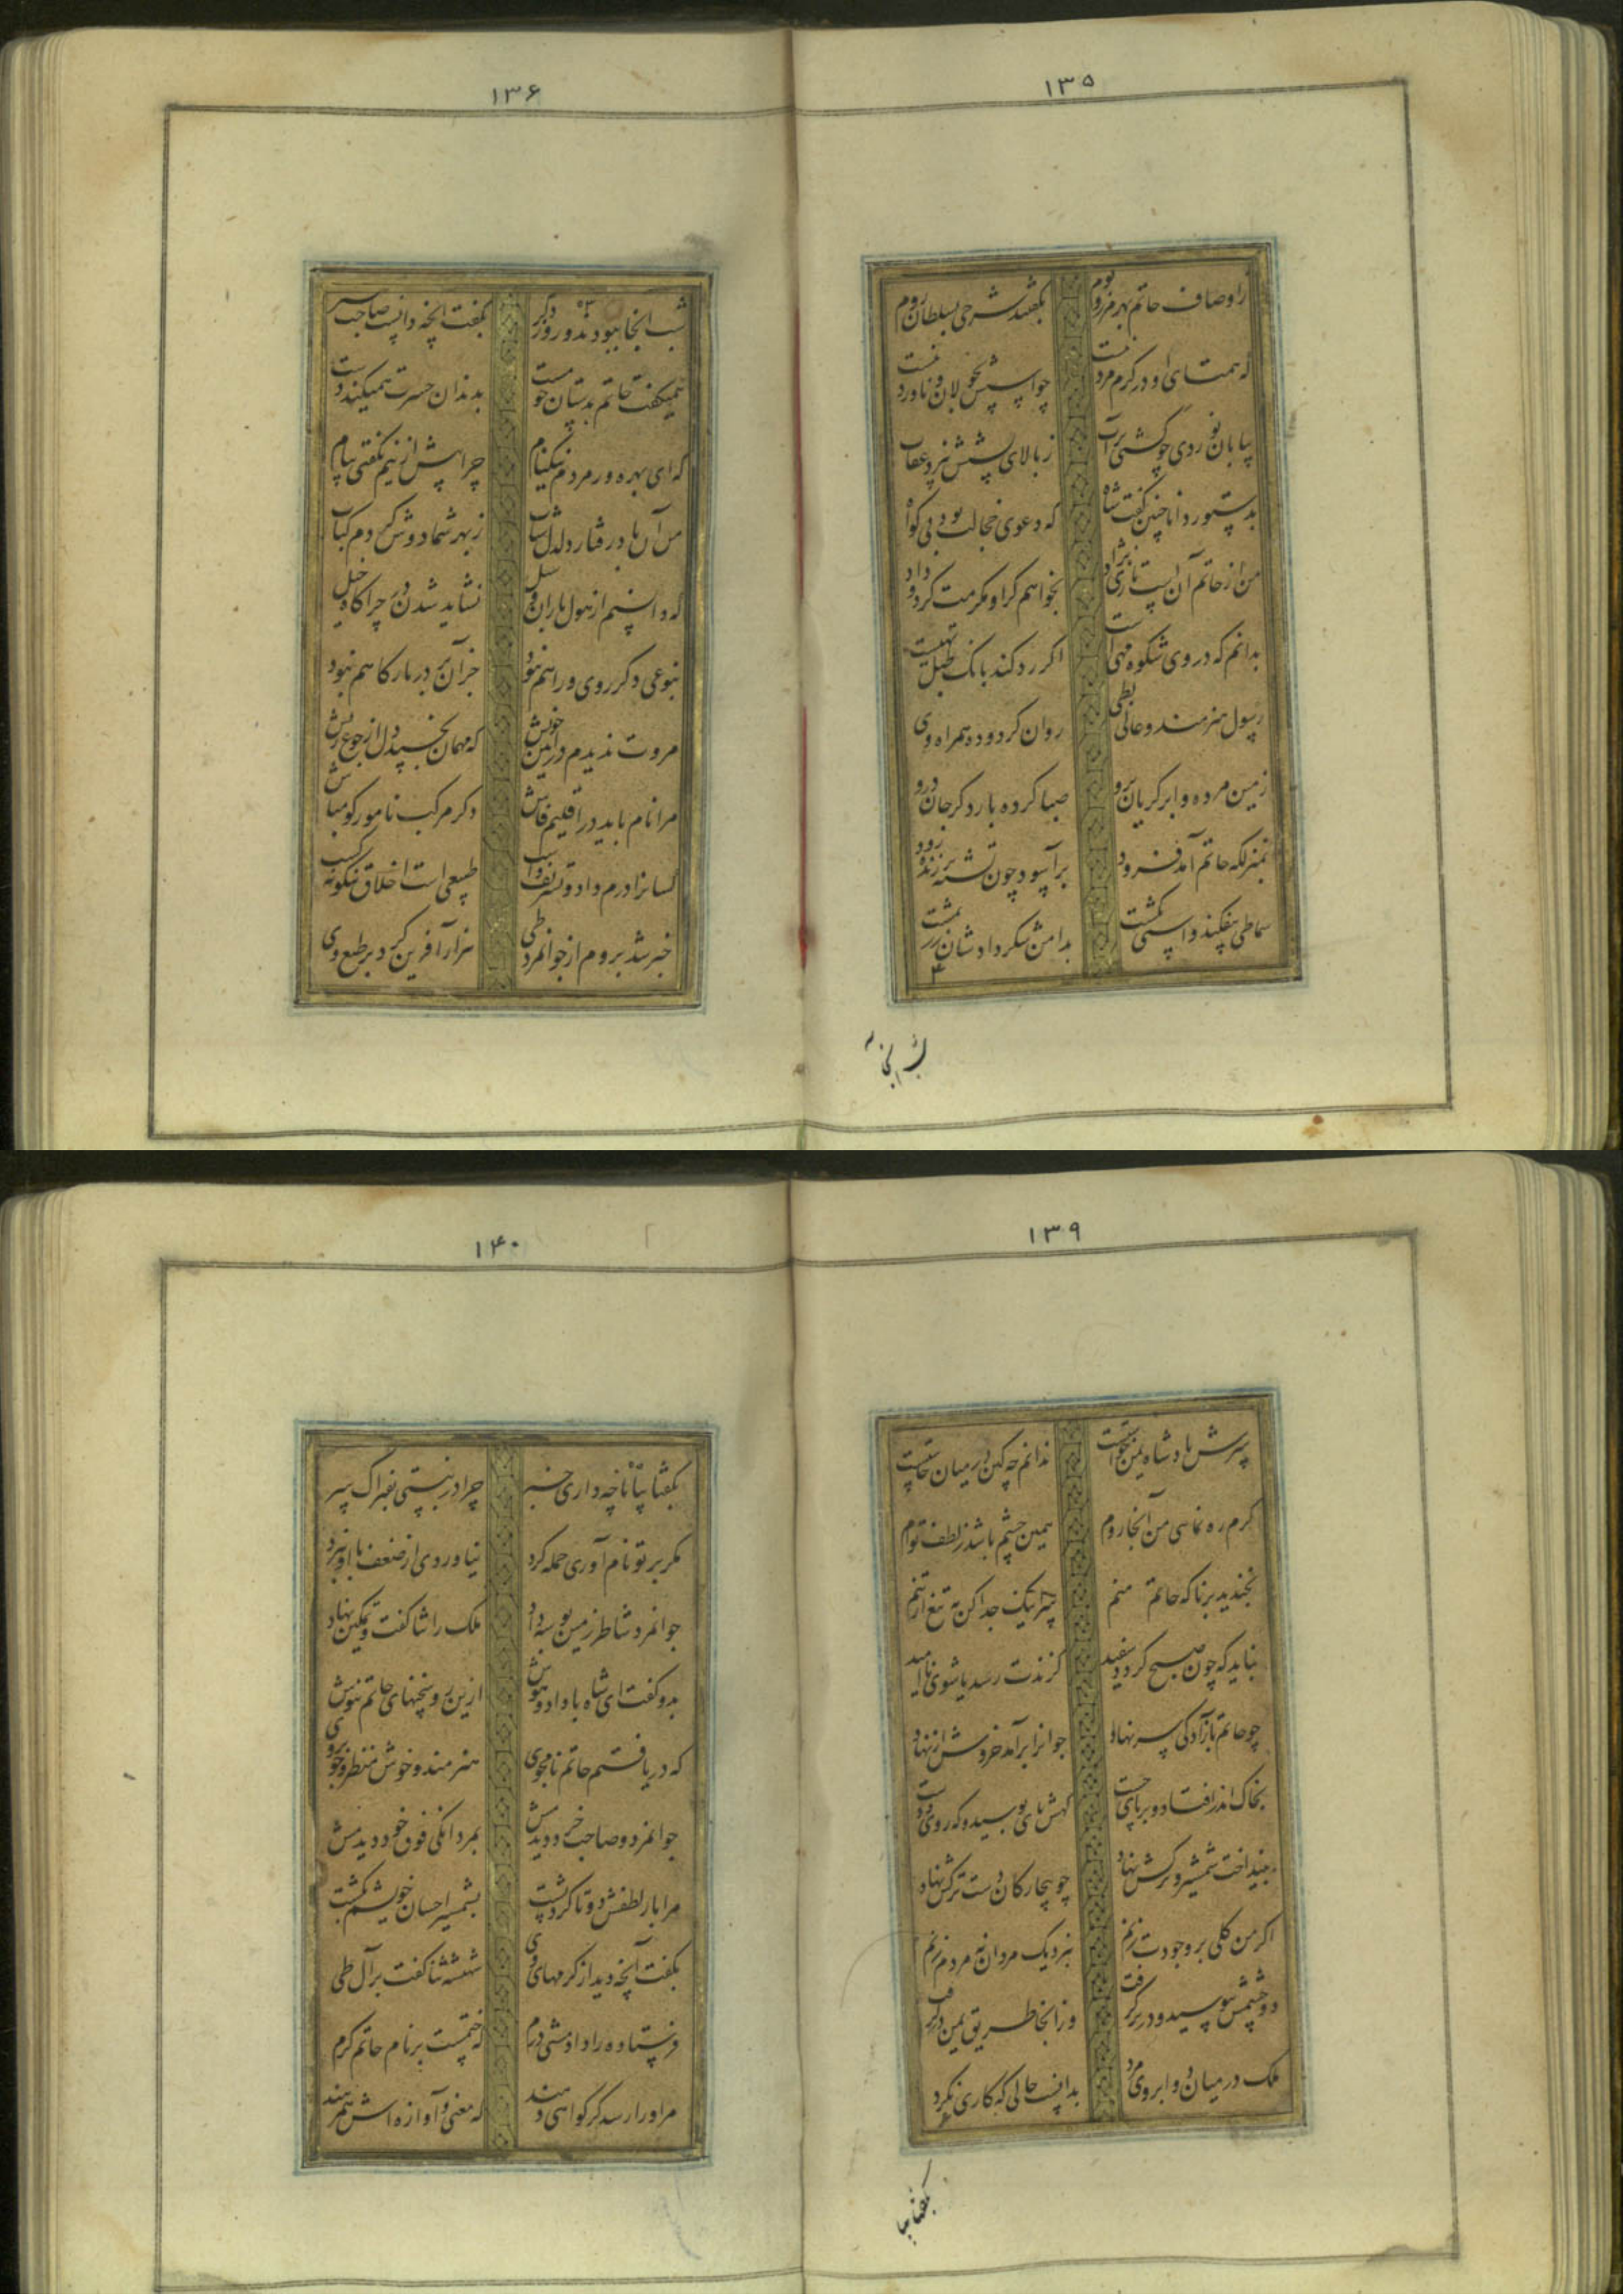 ۱۳۵
ز اوصاف حاتم بهر مرز و بوم بگفتند شرحی بسلطان روم
که همتای او در کرم مرد نیست چو اسپش بجولان و ناورد نیست
بیابان نوردی چو کشتی بر آب که بالای سیرش نپرد عقاب
بدستور دانا چنین گفت شاه که دعوی خجالت بود بی گواه
من از حاتم آن اسپ تازی نژاد بخواهم گر او مکرمت کرد و داد
بدانم که در وی شکوه مهی است اگر رد کند بانگ طبل تهیست
رسول هنرمند و عالی بطی روان کرد و ده همراه وی
زمین مرده و ابر گریان برو صبا کرده بار دگر جان درو
بمنزلگه حاتم آمد فرود برآسود چون تشنه بر زنده رود
سماطی بیفکند و اسپی بکشت بدامن شکر دادشان زر بمشت
شب آنجا
۱۳۶
شب آنجا ببودند و روز دگر بگفت آنچه دانست صاحب خبر
همیگفت حاتم بدستان چو مست بدندان حسرت همیکند دست
که ای بهره ور مردم نیکنام چرا پیش ازینم نگفتی پیام
من آن باد رفتار دلدل شتاب ز بهر شما دوش کردم کباب
که دانستم از هول باران و سیل نشاید شدن در چراگاه خیل
بنوعی دگر روی و راهم نبود جز آن بر در بارگاهم نبود
مروت ندیدم در آیین خویش که مهمان بخسپد دل از جوع ریش
مرا نام باید در اقلیم فاش دگر مرکب نامور گو مباش
کسانرا درم داد و تشریف و اسب طبیعی است اخلاق نیکو نه کسب
خبر شد بروم از جوانمرد طی هزار آفرین کرد بر طبع وی
۱۳۹
سرش پادشاه یمن خواستست ندانم چه کین در میان خاستست
گرم ره نمائی من آنجا روم همین چشم باشد ز لطف توام
بخندید برنا که حاتم منم سر اینک جدا کن به تیغ از تنم
نباید که چون صبح گردد سفید گزندت رسد یا شوی ناامید
چو حاتم بآزادگی سر نهاد جوانرا برآمد خروش از نهاد
بخاک اندر افتاد و بر پای جست گهش پای بوسید و گه روی و دست
بینداخت شمشیر و ترکش نهاد چو بیچارگان دست بر کش نهاد
اگر من گلی بر وجودت زنم بنزدیک مردان نه مردم زنم
دو چشمش ببوسید و در بر گرفت وز آنجا طریق یمن بر گرفت
ملک در میان دو ابروی مرد بدانست حالی که کاری نکرد
بگفتا بیا
۱۴۰
بگفتا بیا تا چه داری خبر چرا در نبستی بفتراک سر
مگر بر تو نام آوری حمله کرد نیاوردی از ضعف با او نبرد
جوانمرد شاطر زمین بوسه داد ملک را ثنا گفت و تمکین نهاد
بدو گفت ای شاه با داد و هوش ازین در سخنهای حاتم نیوش
که دریافتم حاتم نامجوی هنرمند و خوش منظر و خوبروی
جوانمرد و صاحب خرد دیدمش بمردانگی فوق خود دیدمش
مرا بار لطفش دوتا کرد پشت بشمشیر احسان خویشم بکشت
بگفت آنچه دید از کرمهای وی شهنشه ثنا گفت بر آل طی
فرستاده را داد مشتی درم که ختمست بر نام حاتم کرم
مر او را رسد گر گواهی دهند که معنی و آوازه اش همرهند